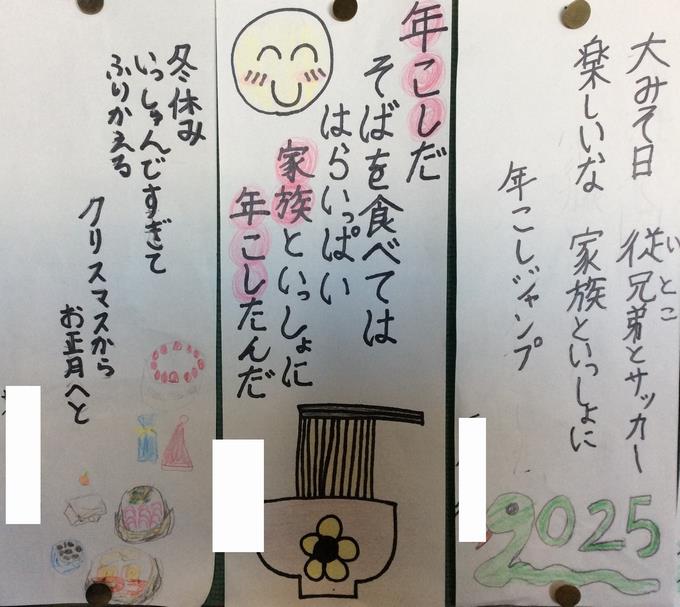 大みそ日
従兄弟とサッカー
いとこ
楽しいな
家族といっしょに
年こしジャンプ
2025
年こしだ
そばを食べては
はらいっぱい
家族といっしょに
年こしたんだ
冬休み
いっしゅんですぎて
ふりかえる
クリスマスから
お正月へと